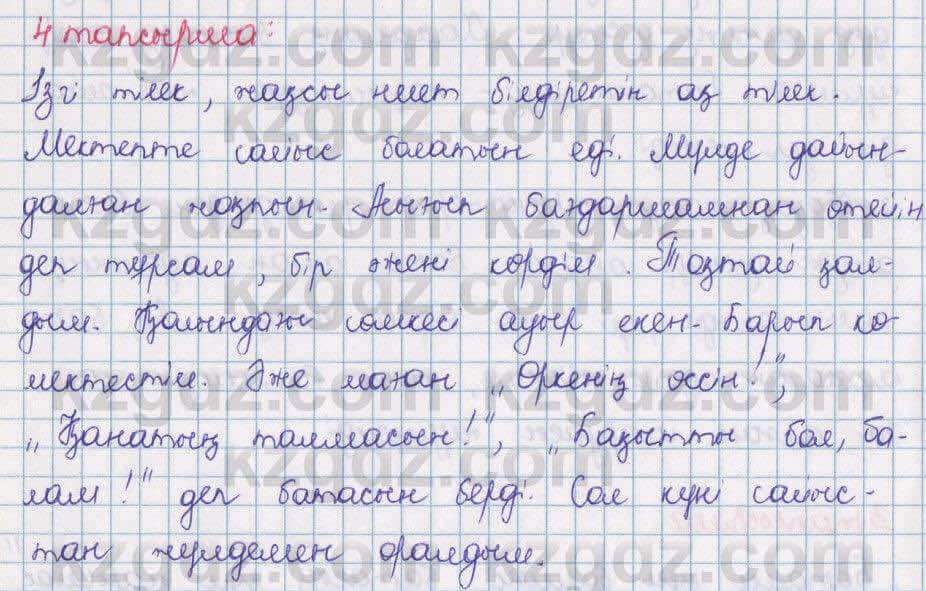 4 тапсырма:
Ізгі тілек, жақсы ниет білдіретін ақ тілек.
Мектепте сайыс болатын еді. Мүлде дайын-
далған жоқпын. Асығып бағдаршамнан өтейін
деп тұрсам, бір әжені көрдім. Тоқтай қал-
дым. Қолындағы сөмкесі ауыр екен. Барып кө-
мектестім. Әже маған „Өркенің өссін!",
„Қанатың талмасын!", „Бақытты бол, ба-
лам!" деп батасын берді. Сол күні сайыс-
тан жүлдемен оралдым.
kzgdz.com